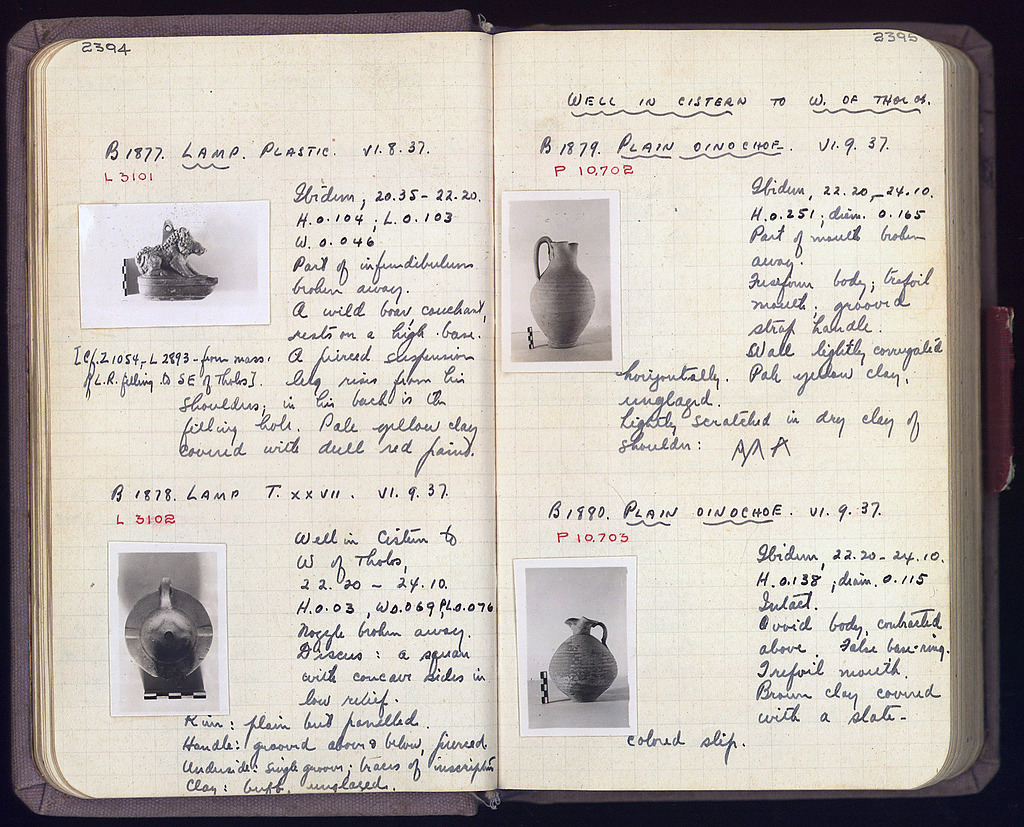 2394
B 1877. LAMP. PLASTIC. VI. 8. 37.
L 3101
Ibidem, 20.35 - 22.20.
H. 0.104 ; L. 0.103
W. 0.046
Part of infundibulum
broken away.
A wild boar, couchant,
rests on a high base.
[Cf. L 1054, L 2893 - from mass.
of L.R. filling to SE of Tholos].
A pierced suspension
lug rises from his
shoulders; in his back is the
filling hole. Pale yellow clay
covered with dull red paint.
B 1878. LAMP T. XXVII. VI. 9. 37.
L 3102
Well in Cistern to
W of Tholos,
22.20 - 24.10.
H. 0.03, W 0.069, PL. 0.076
Nozzle broken away.
Discus: a square
with concave sides in
low relief.
Rim: plain but panelled.
Handle: grooved above & below, pierced.
Underside: single groove; traces of inscription
Clay: buff, unglazed.
2395
WELL IN CISTERN TO W. OF THOLOS.
B 1879. PLAIN OINOCHOE. VI. 9. 37.
P 10,702
Ibidem, 22.20 - 24.10.
H. 0.251; diam. 0.165
Part of mouth broken
away.
Fusiform body; trefoil
mouth, grooved
strap handle.
Wall lightly corrugated
horizontally. Pale yellow clay,
unglazed.
Lightly scratched in dry clay of
shoulder:
B 1880. PLAIN OINOCHOE. VI. 9. 37.
P 10,703
Ibidem, 22.20 - 24.10.
H. 0.138 ; diam. 0.115
Intact.
Ovoid body, contracted
above. False base-ring.
Trefoil mouth.
Brown clay covered
with a slate-
colored slip.